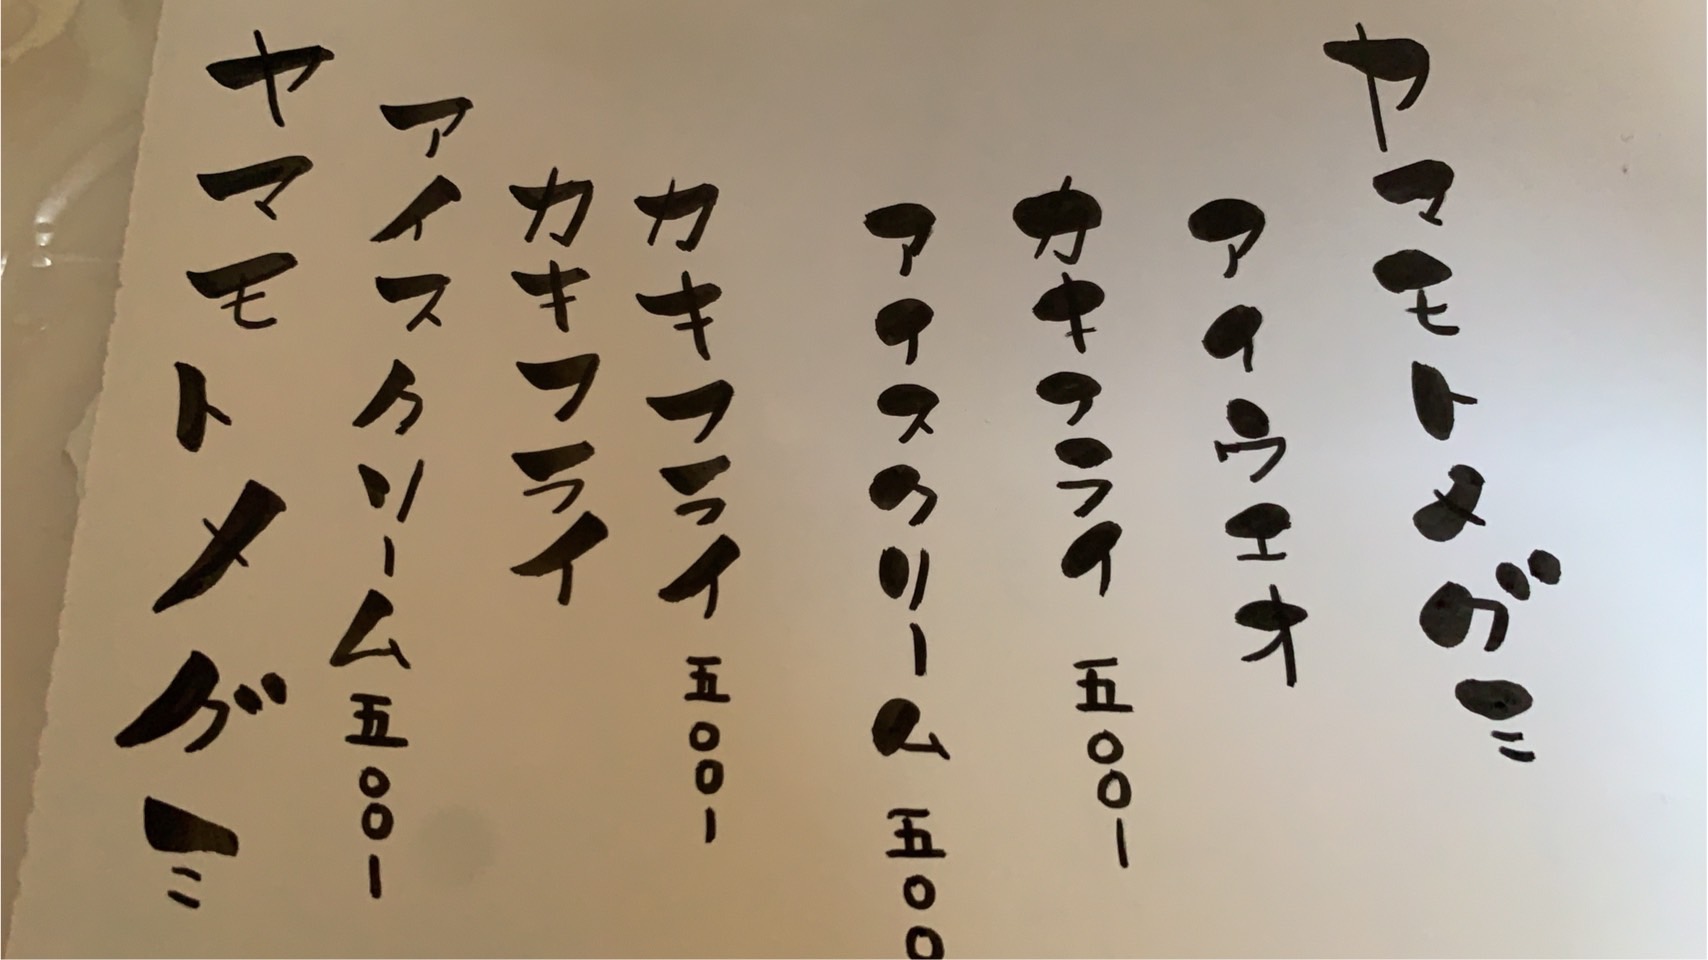 ヤマモトメグミ
アイウエオ
カキフライ 五〇〇ー
アイスクリーム 五〇〇
カキフライ 五〇〇ー
カキフライ
アイスクリーム 五〇〇ー
ヤマモトメグミ